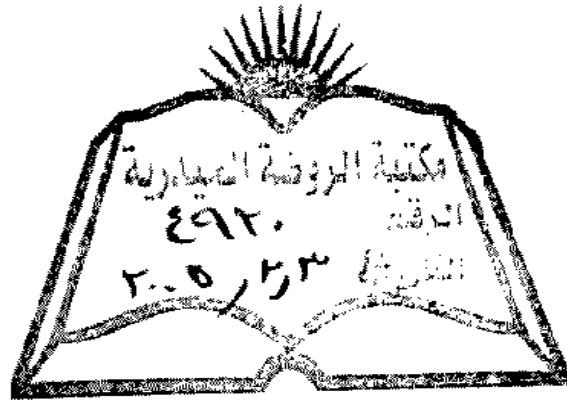 مكتبة الروضة الحيدرية
الرقم ٤٩٢٠
التاريخ ٢٠٠٥,٢,٣